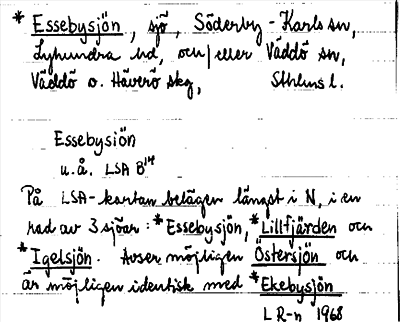 * Essebysjön, sjö, Söderby-Karls sn,
Lyhundra hd, och/eller Väddö sn,
Väddö o. Häverö skg, Sthlms l.
Essebysiön
u.å. LSA B 14
På LSA-kartan belägen längst i N, i en
rad av 3 sjöar: *Essebysjön, *Lillfjärden och
*Igelsjön. Avser möjligen Östersjön och
är möjligen identisk med *Ekebysjön
LR-n 1968